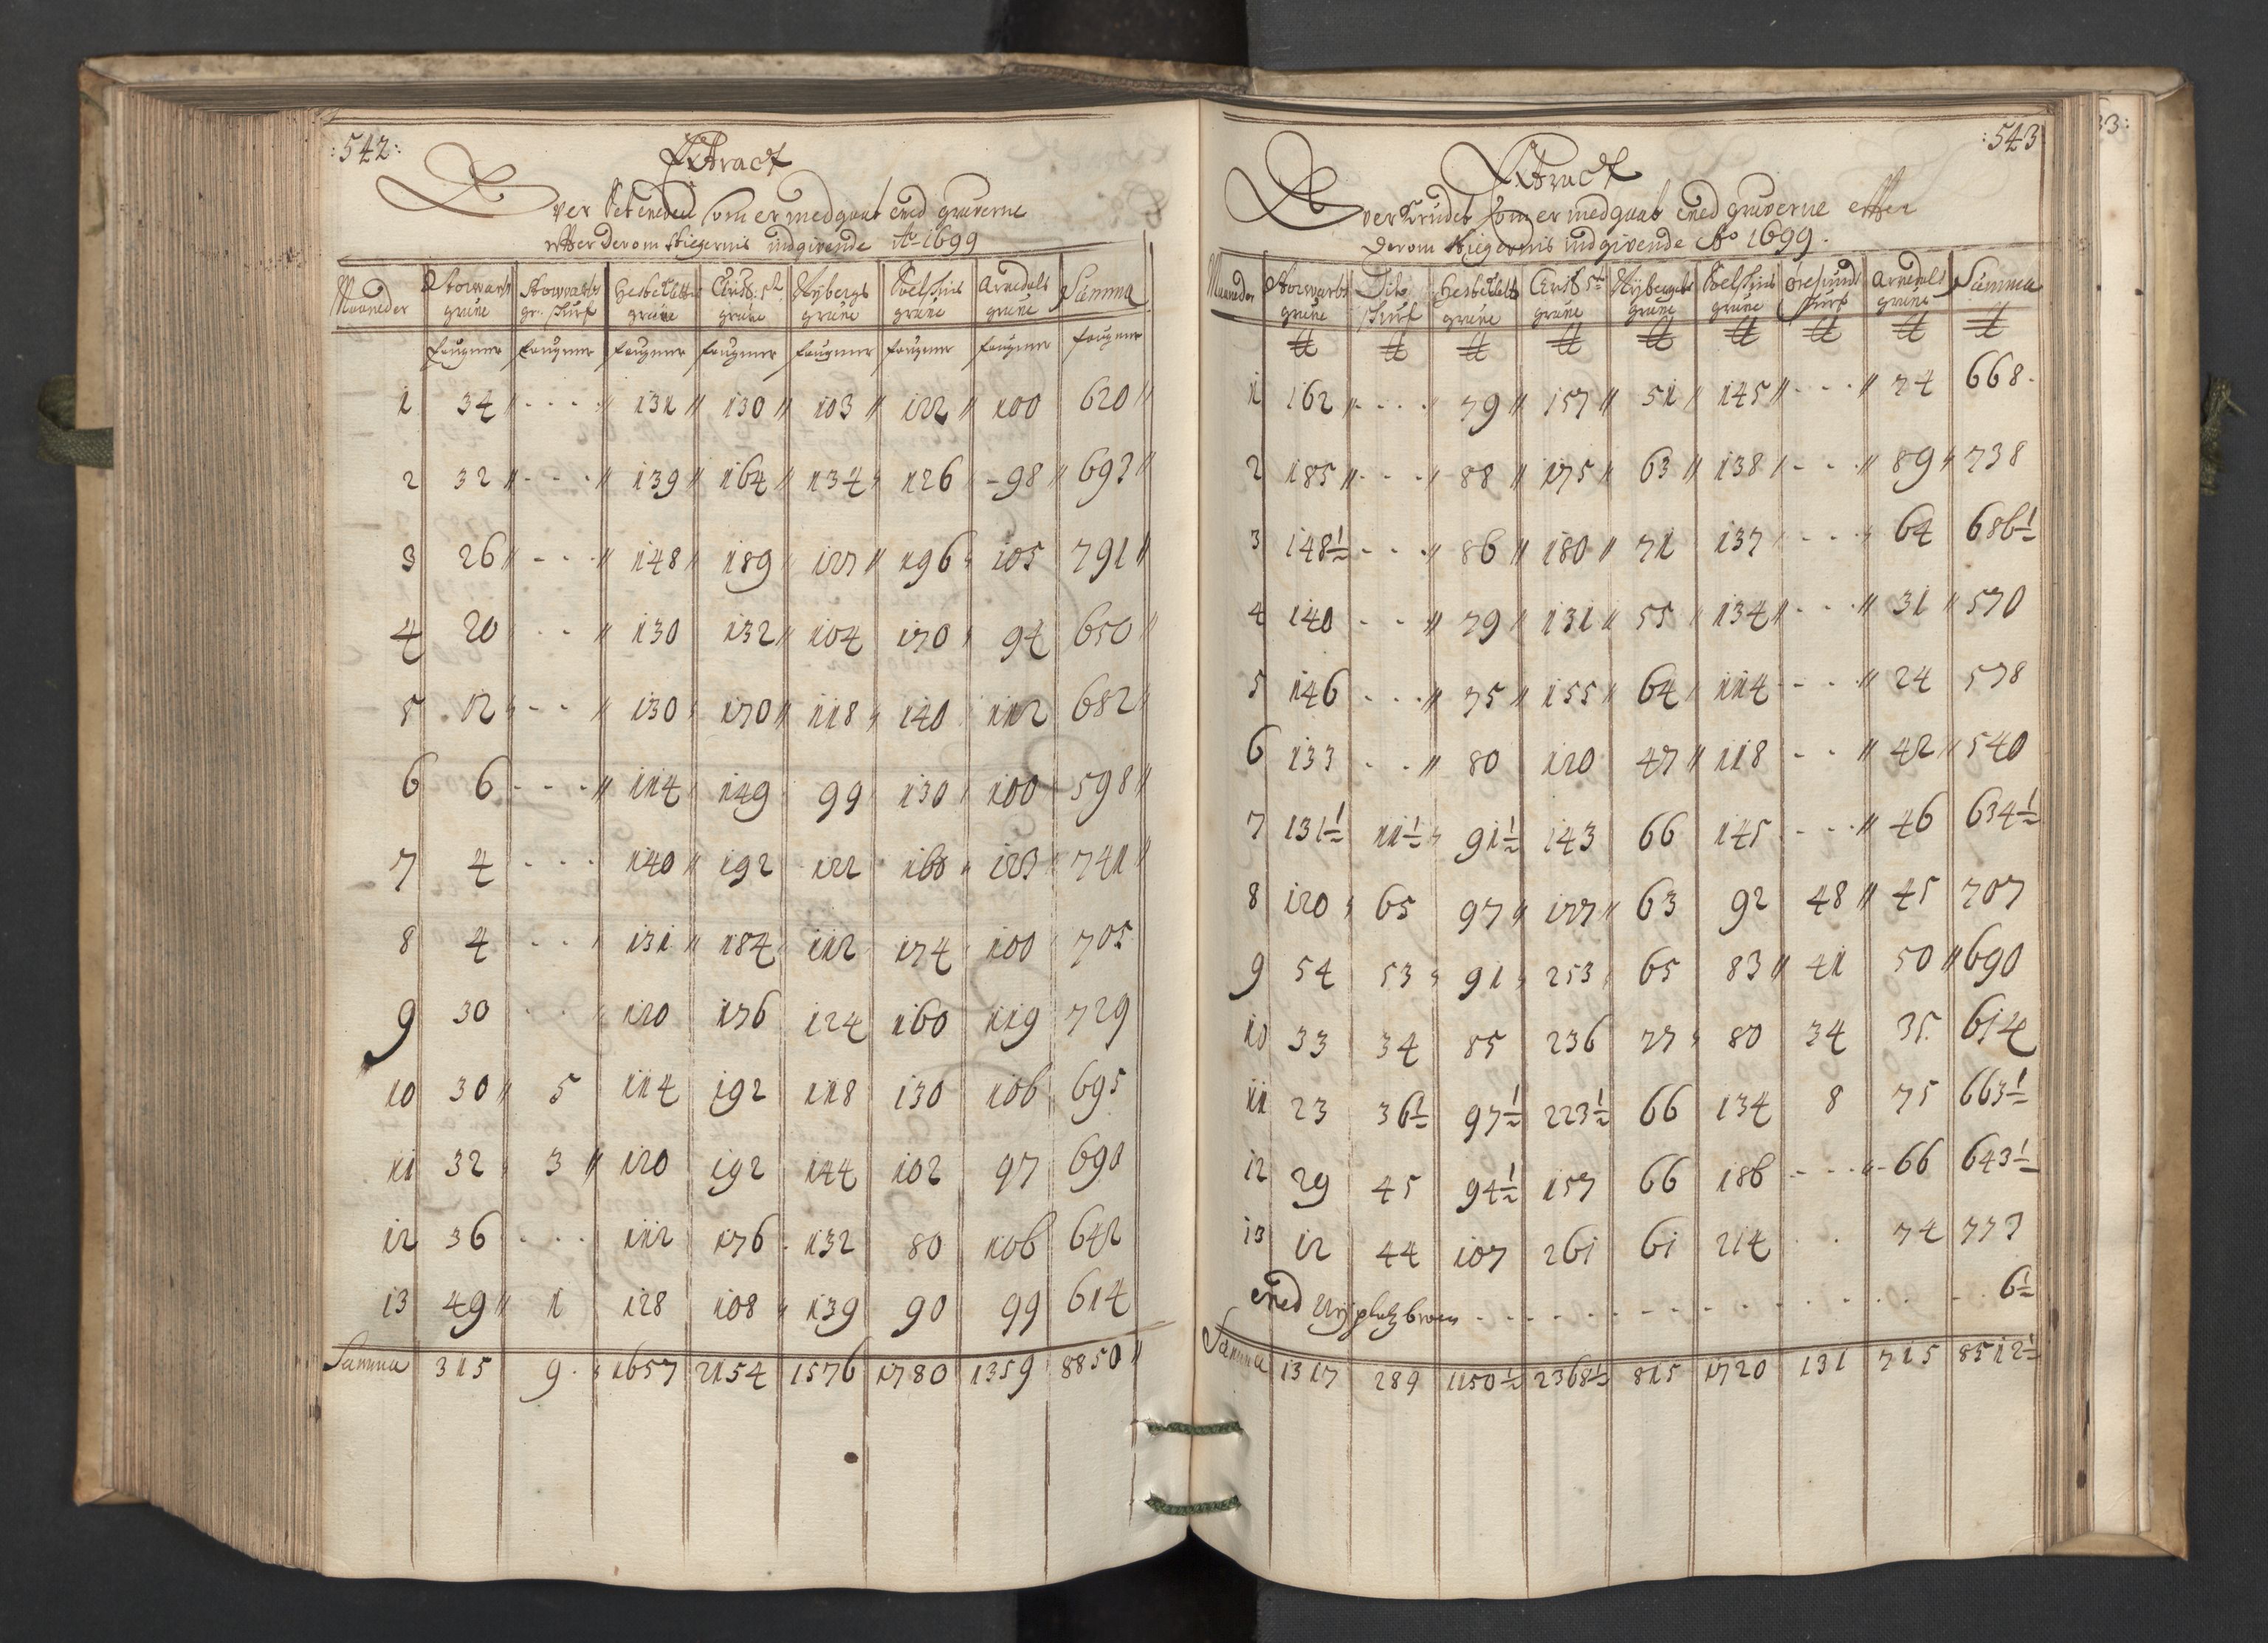 :542:
Extract
Over Setveden som er medgaat ved gruverne
efter derom Stigernis indgivende Ao 1699
Maaneder Storwarts grube Storwarts gr: Skurf Hestkletten grube Christ: 5t grube Nybergs grube Soelskins grube Arvedals grube Summa
faugner faugner faugner faugner faugner faugner faugner faugner
1 34 " - - - " 131 " 130 " 103 " 122 " 100 620 "
2 32 " - - - " 139 " 164 " 134 " 126 " - 98 " 693 "
3 26 " - - - " 148 " 189 " 127 " 196 " 105 791 "
4 20 - - " 130 132 " 104 170 " 94 650 "
5 12 " - - " 130 " 170 " 118 " 140 112 682 "
6 6 - - - " 114 149 99 130 100 598 "
7 4 - - - 140 " 192 122 160 " 123 741 "
8 4 - - 131 " 184 112 174 100 705
9 30 - - 120 176 124 160 119 729
10 30 " 5 114 192 118 130 106 695
11 32 3 " 120 192 144 102 97 690
12 36 - - - 112 176 132 80 106 642
13 49 " 1 128 108 139 90 99 614
Summa 315 9 1657 2154 1576 1780 1359 8850 "
:543
Extract
Over Krudet som er medgaat ved gruverne efter
derom Stigernis indgivende Ao 1699.
Maaneder Storwarts grube Dito Skurf Hestklettens grube Christ 5t grube Nybergets grube Soelskins grube Øresunds Skurf Arvedals grube Summa
℔ ℔ ℔ ℔ ℔ ℔ ℔ ℔ ℔
1 162 " - - - " 79 " 157 " 51 " 145 " - - - " 74 668
2 185 " - - - " 88 " 175 " 63 " 138 " - - - " 89 " 738
3 148½ - - - " 86 " 180 " 71 137 - - - 64 686½
4 140 - - - " 79 " 131 " 55 134 " - - - " 31 " 570
5 146 - - - " 75 " 155 " 64 114 - - - " 24 578
6 133 - - " 80 120 47 " 118 - - " 42 " 540
7 131½ 11½ 91½ 143 66 145 - - - " 46 634½
8 120 65 97 " 177 " 63 92 48 " 45 707
9 54 53 91 253 65 83 " 41 50 " 690
10 33 34 85 236 77 80 34 35 614
11 23 36½ 97½ 223½ 66 134 8 75 663½
12 29 45 94½ 157 66 186 - - - 66 643½
13 12 44 107 261 61 214 - - 74 773
ved - - - - - - - - - - 6½
Summa 1317 289 1150½ 2368½ 815 1720 131 715 8512½